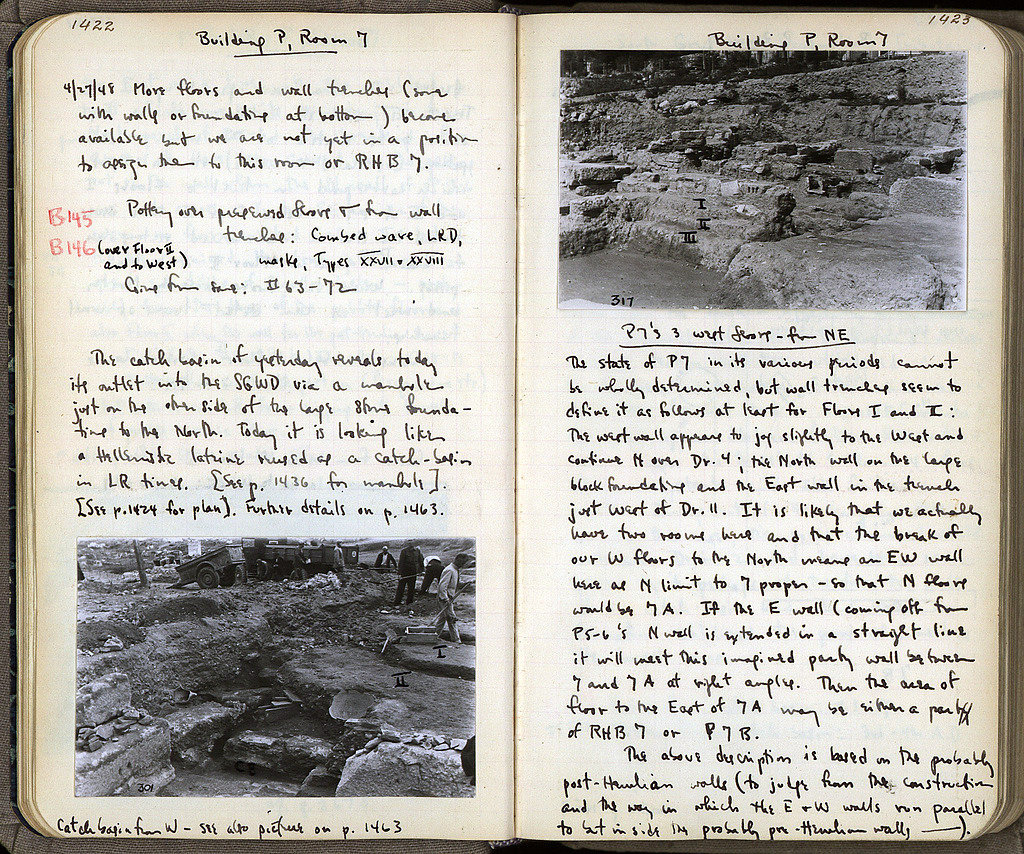 1422
Building P, Room 7
4/27/48 More floors and wall trenches (some
with walls or foundations at bottom) became
available but we are not yet in a position
to assign them to this room or RHB 7.
B145 Pottery over preserved floors & from wall
trenches: Combed ware, LRD,
B146 (over Floor II
and to West) masks, Types XXVII & XXVIII
Coins from same: # 63-72
The catch basin of yesterday reveals today
its outlet into the SGWD via a manhole
just on the other side of the large stone founda-
tion to the North. Today it is looking like
a Hellenistic latrine reused as a catch-basin
in LR times. [See p. 1436 for manhole].
[See p.1424 for plan]. Further details on p. 1463.
I
II
CB
301
Catch basin from W - see also picture on p. 1463
1423
Building P, Room 7
I
II
III
317
P7's 3 west floors - from NE
The state of P7 in its various periods cannot
be wholly determined, but wall trenches seem to
define it as follows at least for Floors I and II:
The west wall appears to jog slightly to the West and
continue N over Dr. 4; the North wall on the large
block foundation and the East wall in the trench
just West of Dr. 11. It is likely that we actually
have two rooms here and that the break of
our W floors to the North means an EW wall
here as N limit to 7 proper - so that N floors
would be 7A. If the E wall (coming off from
P5-6's N wall is extended in a straight line
it will meet this imagined party wall between
7 and 7A at right angles. Then the area of
floor to the East of 7A may be either a part
of RHB 7 or P7B.
The above description is based on the probably
post-Herulian walls (to judge from the construction
and the way in which the E & W walls run parallel
to but inside the probably pre-Herulian walls —).